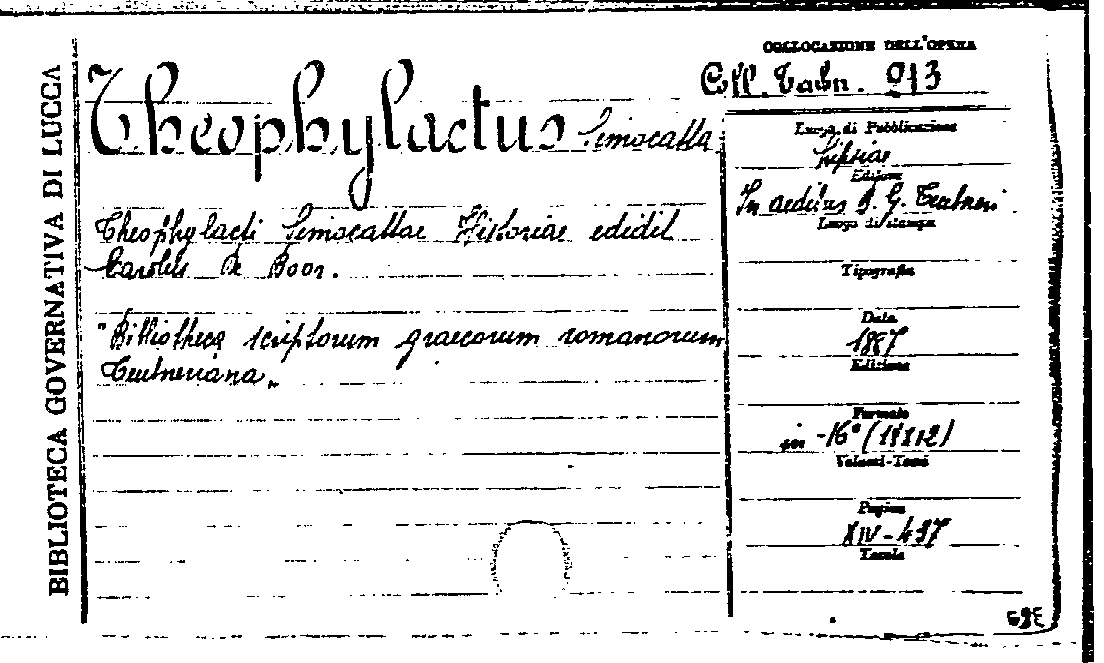 BIBLIOTECA GOVERNATIVA DI LUCCA
COLLOCAZIONE DELL'OPERA
Coll. Taubn. 913
Theophylactus Simocatta
Theophylacti Simocattae Historiae edidit
Carolus De Boor.
"Bibliotheca scriptorum graecorum romanorum
Teubneriana"
Luogo di Pubblicazione
Lipsiae
Edizione
In aedibus B. G. Teubneri
Luogo di stampa
Tipografia
Data
1887
Edizione
Formato
in -16° (18X12)
Volumi-Tomi
Pagine
XIV - 437
Tavole